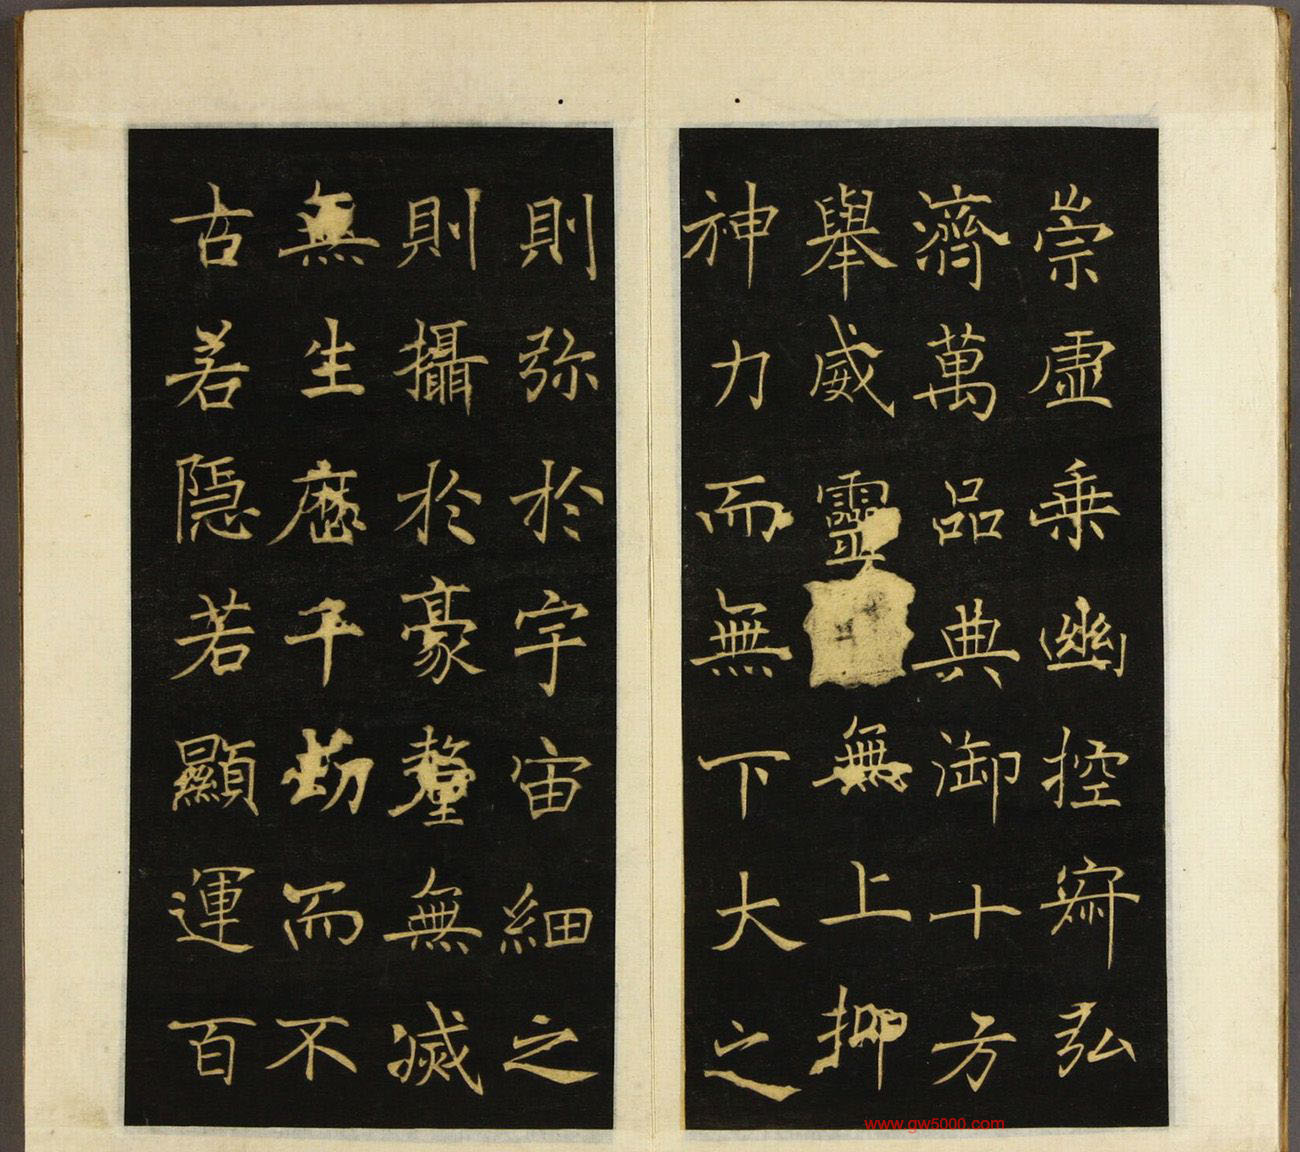 崇虛乘幽控寂弘
濟萬品典御十方
舉威靈無上抑
神力而無下大之
則弥於宇宙細之
則攝於豪釐無滅
無生歷千劫而不
古若隱若顯運百
www.gw5000.com